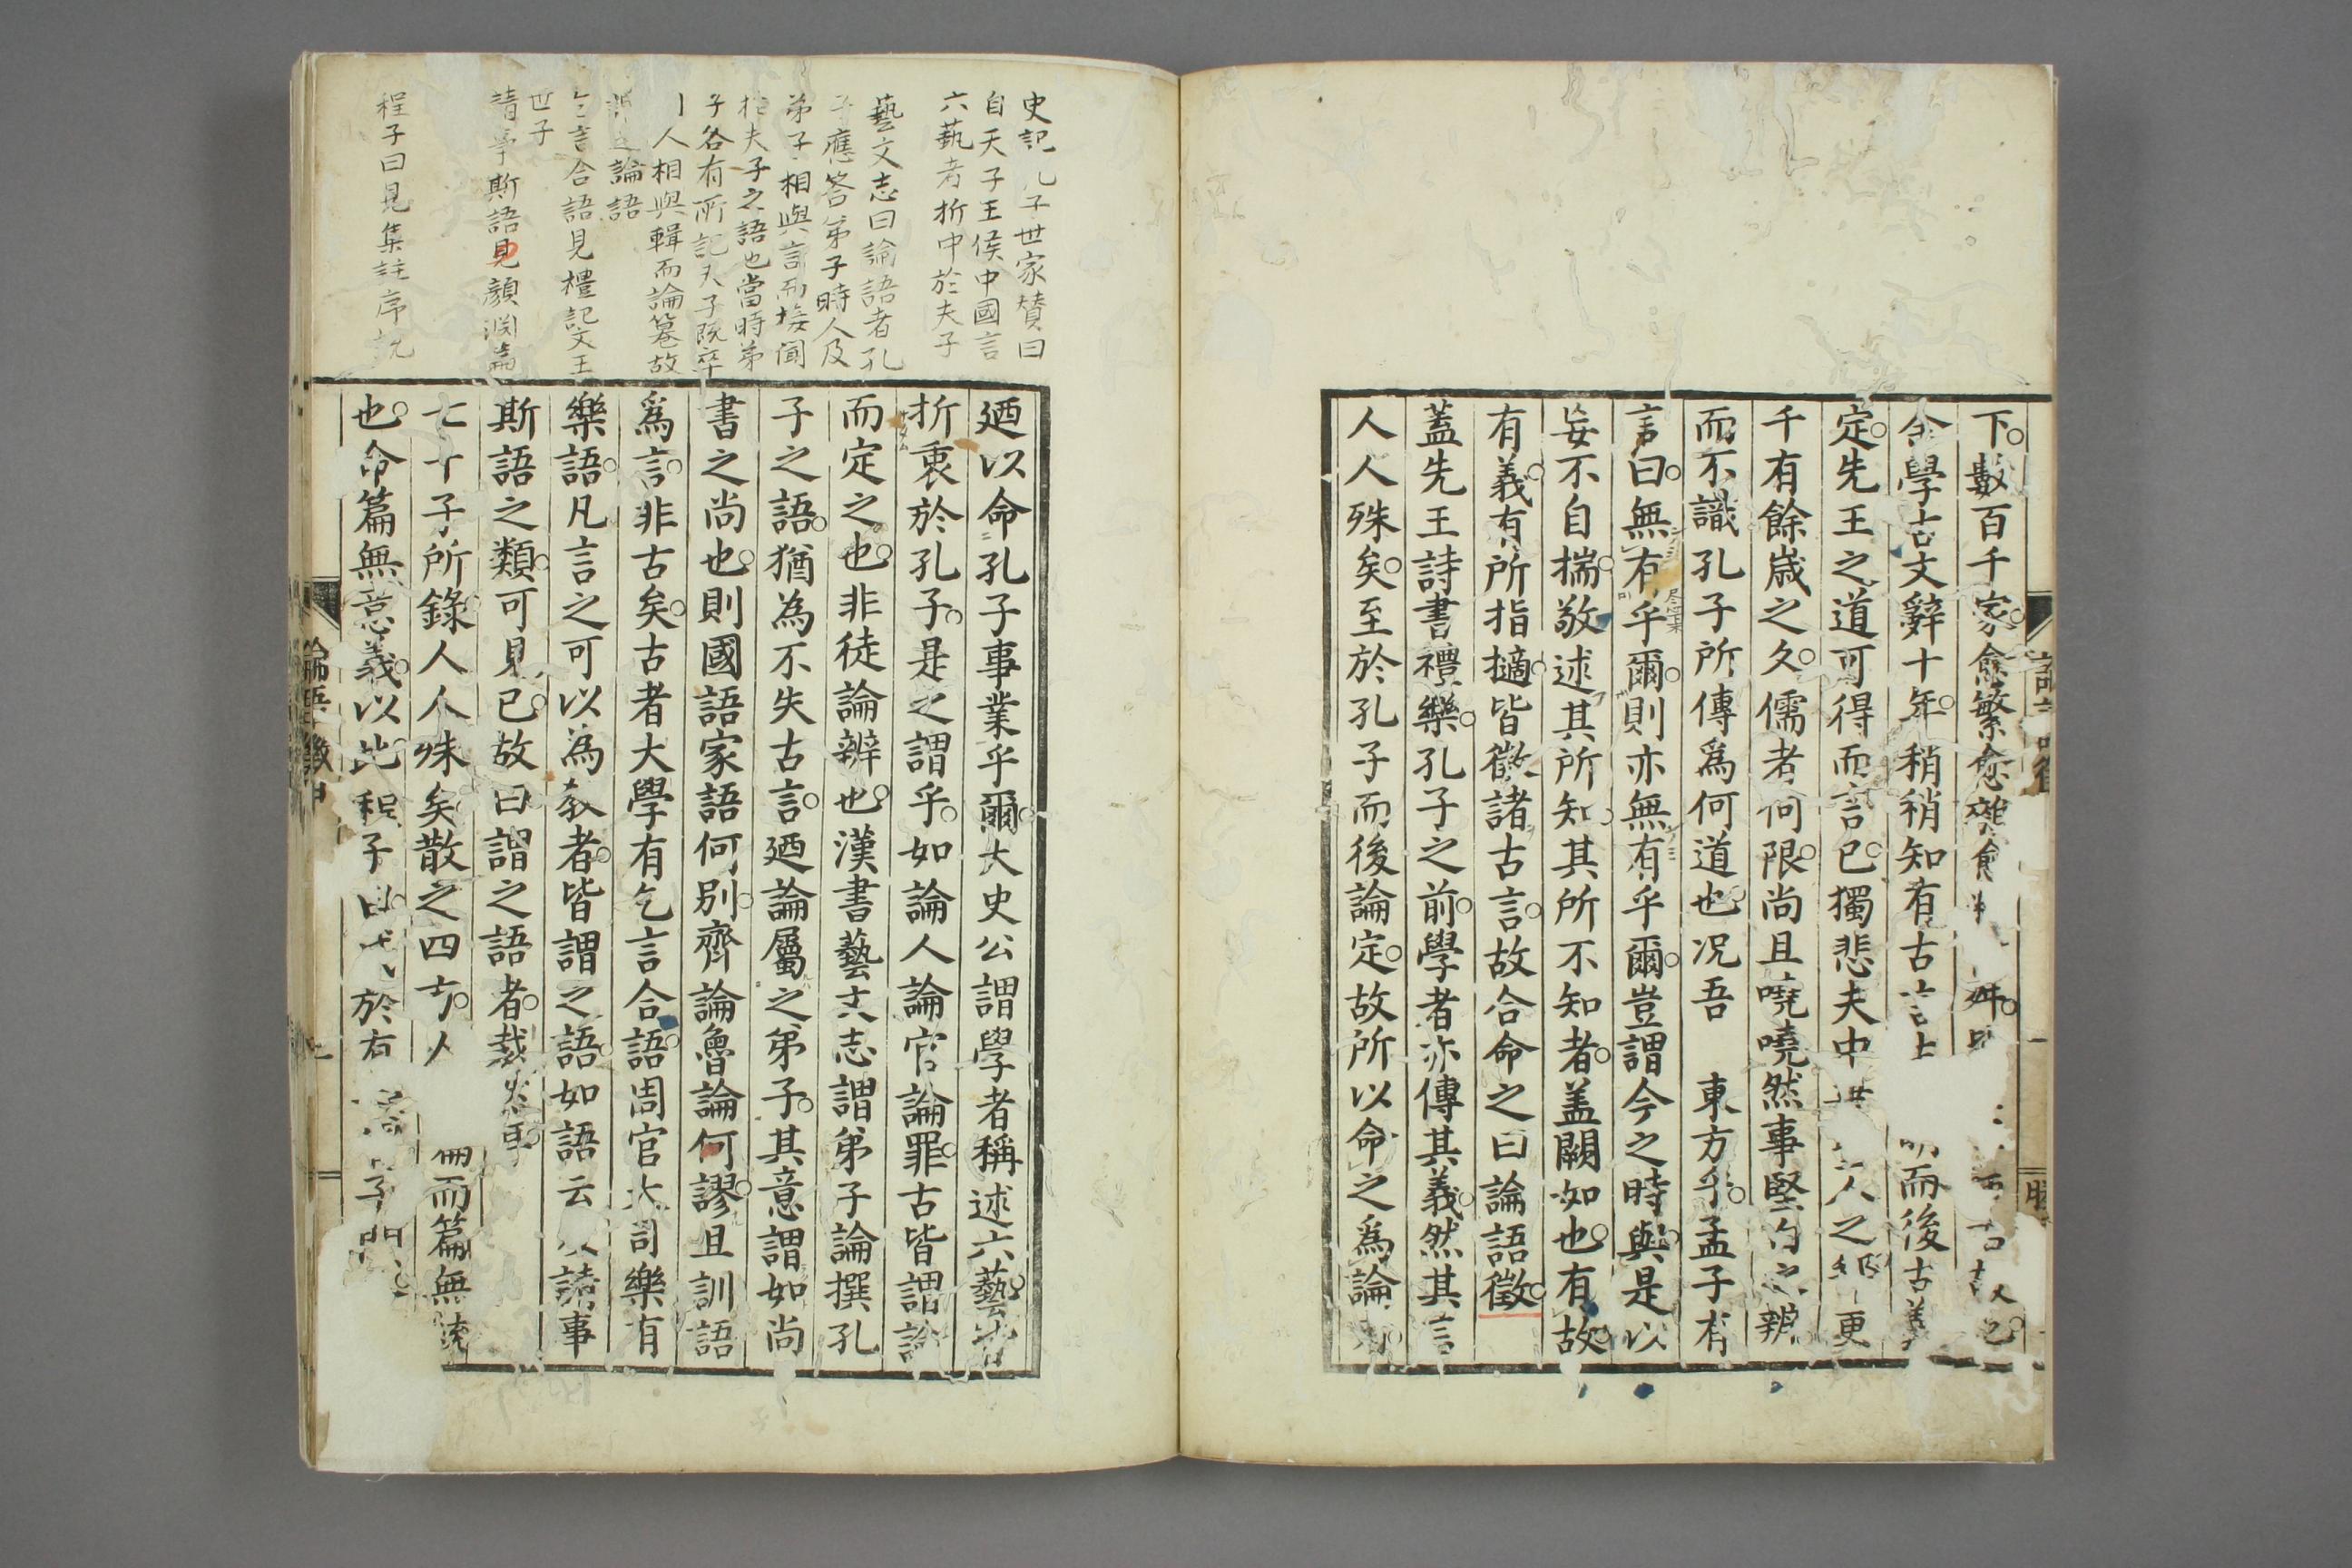 下數百千家愈繁愈雜愈
余學古文辭十年稍稍知有古言 而後古義
定先王之道可得而言已獨悲夫中 人之 更
千有餘歲之久儒者何限尚且嘵嘵然事堅白之辨
而不識孔子所傳爲何道也况吾 東方乎孟子有
言曰無有乎爾則亦無有乎爾豈謂今之時與是以
妄不自揣敬述其所知其所不知者盖闕如也有故
有義有所指擿皆徵諸古言故合命之曰論語徵
蓋先王詩書禮樂孔子之前學者亦傳其義然其言
人人殊矣至於孔子而後論定故所以命之爲論
史記孔子世家賛曰
自天子王侯中國言
六藝者折中於夫子
藝文志曰論語者孔
子應答弟子時人及
弟子相與言而接聞
於夫子之語也當時弟
子各有所記夫子既卒
門人相與輯而論篹故
謂之論語
乞言合語見禮記文王
世子
請事斯語見顔淵篇
程子曰見集註序説
廼以命孔子事業乎爾大史公謂學者稱述六藝者
折衷於孔子是之謂乎如論人論官論罪古皆謂論
而定之也非徒論辨也漢書藝文志謂弟子論撰孔
子之語猶為不失古言廼論屬之弟子其意謂如尚
書之尚也則國語家語何別齊論魯論何謬且訓語
爲言非古矣古者大學有乞言合語周官大司樂有
樂語凡言之可以為教者皆謂之語如語云 請事
斯語之類可見已故曰謂之語者裁
七十子所錄人人殊矣散之四方 而篇無
也命篇無意義以此程子曰 於有 子門
論語徵甲